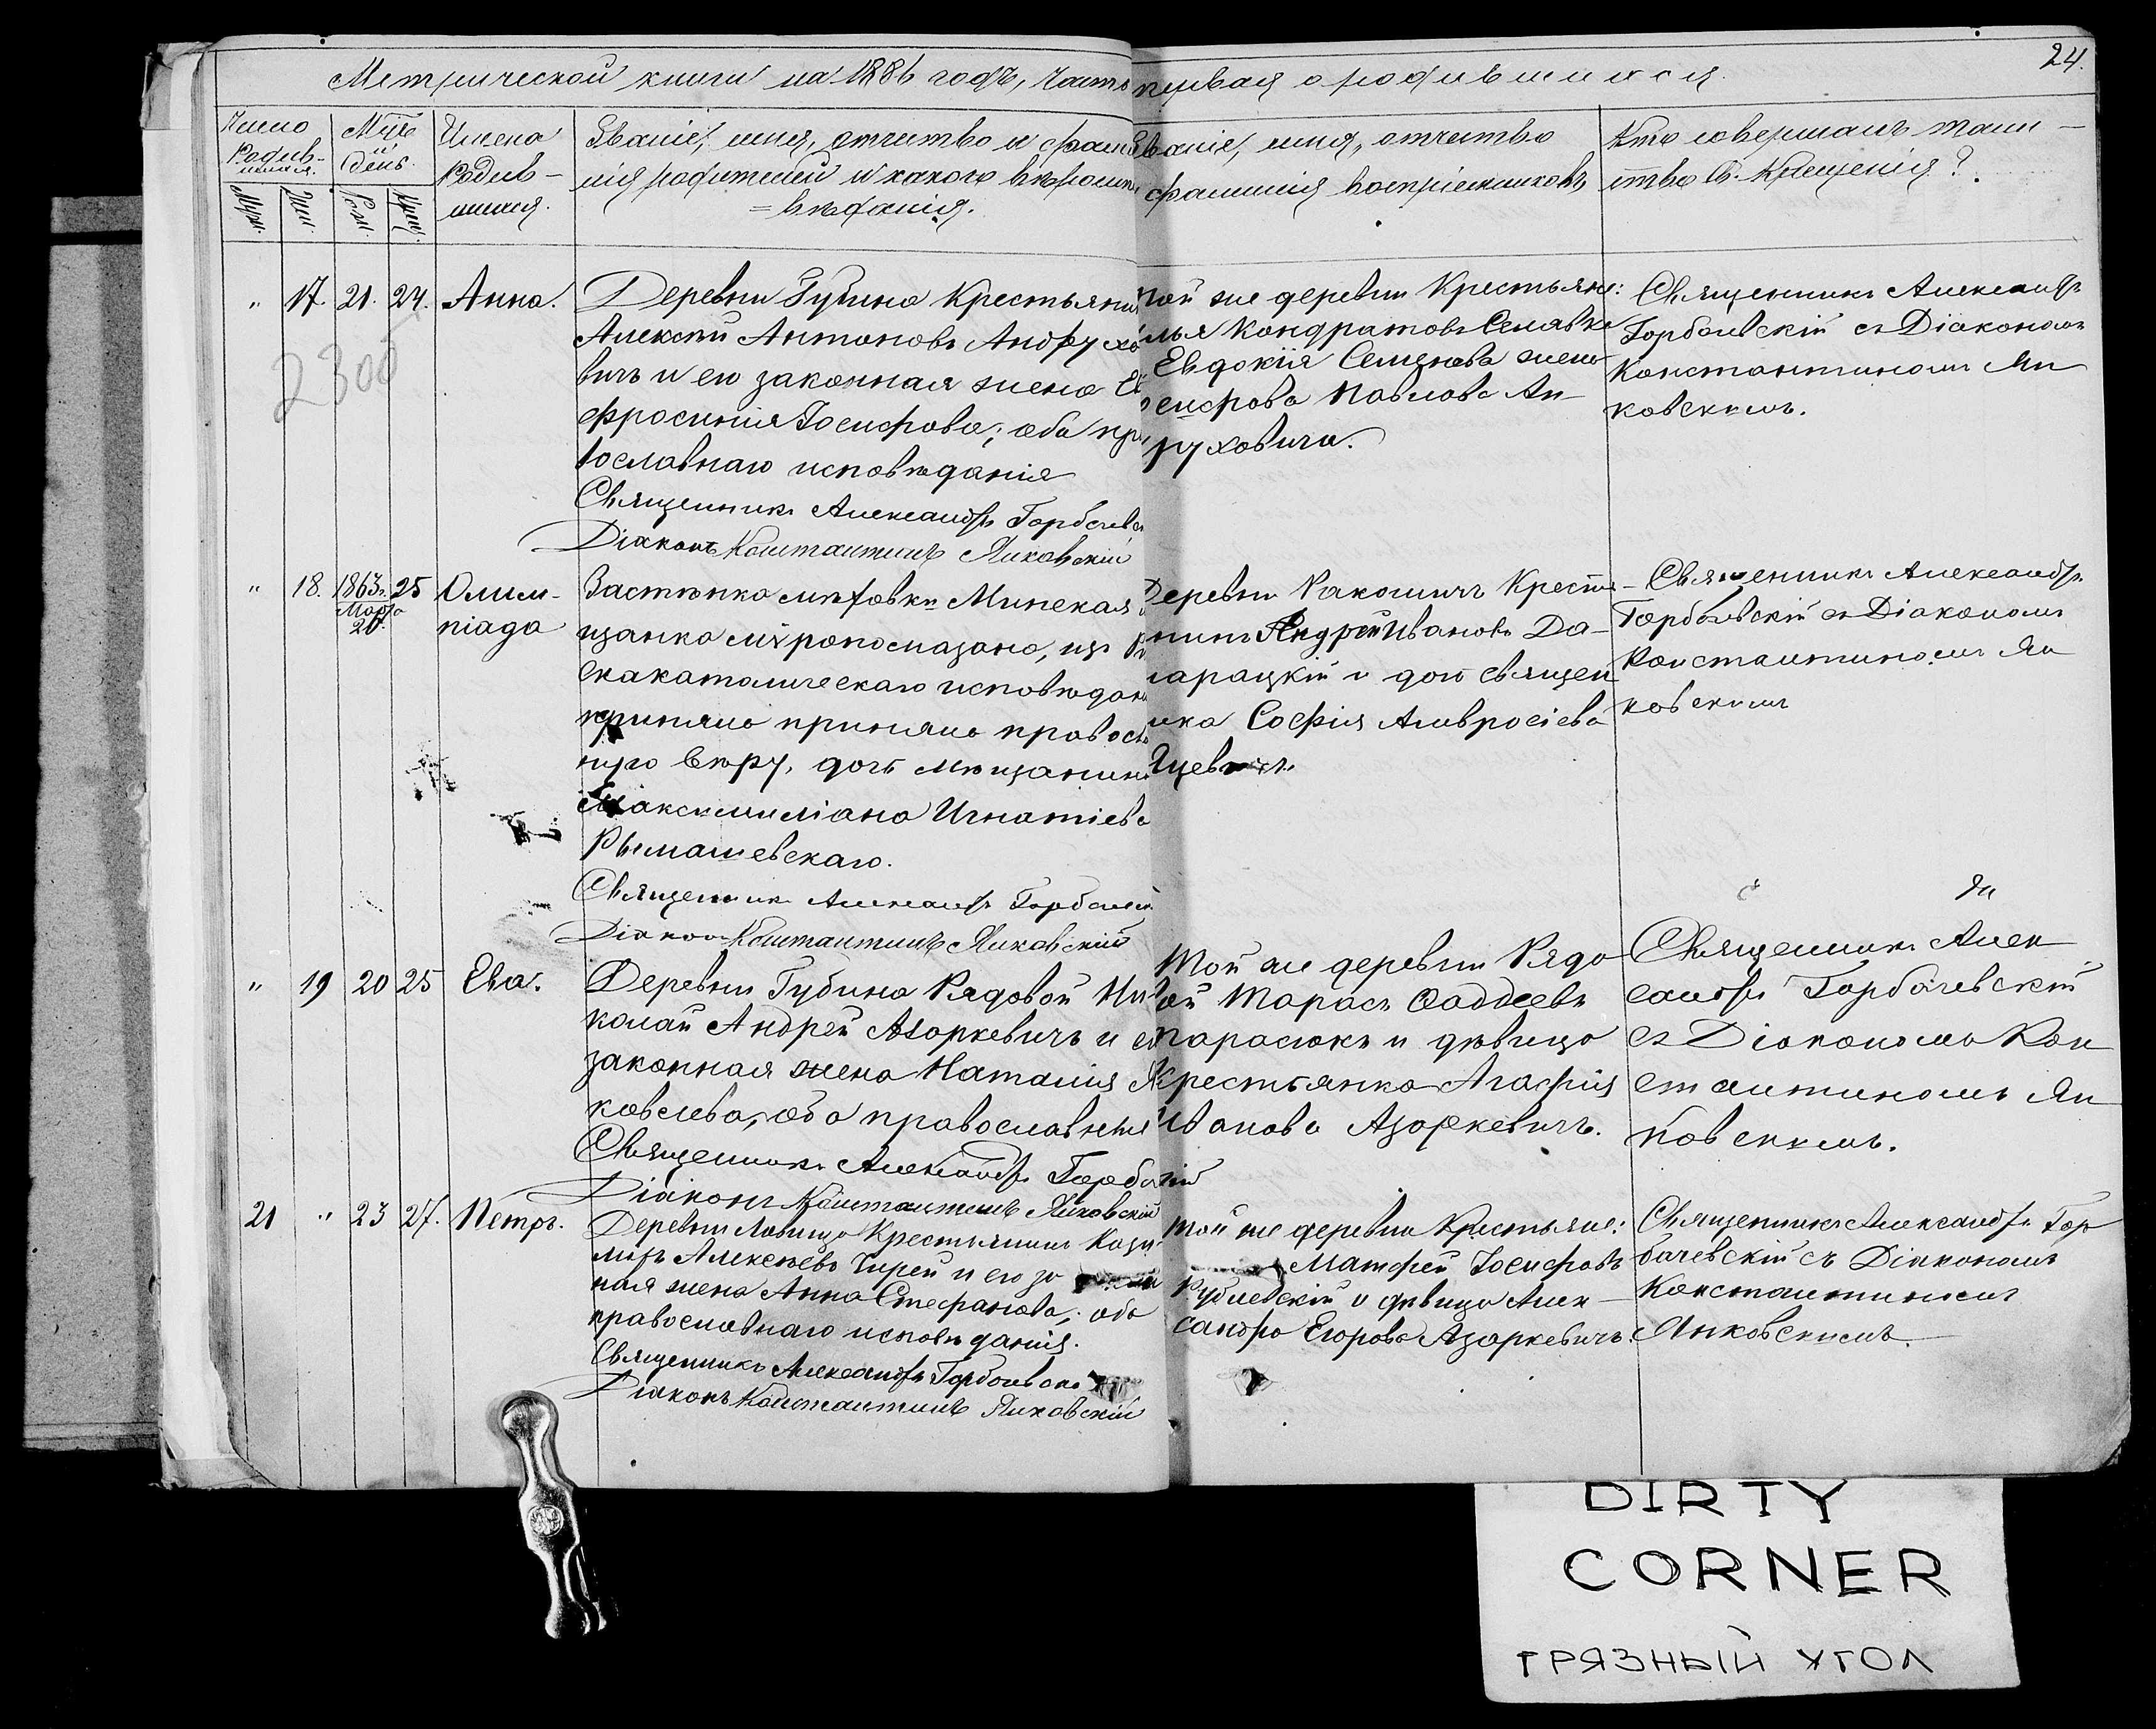 24.
Метрической книги на 1886 годъ, часть первая о родившихся.
Число родив-шихся.
Муж.
Жен.
Мѣсяцъ и день.
Рож.
Крещ.
Имена родив-шихся.
Званіе, имя, отчество и фами-
лія родителей и какого вѣроиспо-
=вѣданія.
Званіе, имя, отчество
фамилія воспріемниковъ
Кто совершалъ таин-
ство Св. Крещенія?
" 17. 21. 24. Анна.
2300
Деревни Губина Крестьянинъ
Алексѣй Антоновъ Андрухо
вичъ и его законная жена Ев
фросинія Іосифова; оба пра
вославнаго исповѣданія
Священникъ Александръ Горбачевс
Діаконъ Константинъ Янковскій
Той же деревни Крестьяне:
Илья Кондратовъ
Евдокія Семенова жена
Осифова Павлова Ан
руховича.
Священникъ Александръ
Горбачевскій съ Діакономъ
Константиномъ Ян
ковскимъ.
" 18. 1863г. Марта 20. 25 Олим-
піада
Застѣнка Минская
щанка мѵропомазана, изъ Ри
скакатолическаго исповѣдан
приняла православ
ную вѣру, дочь мѣщанина
Максимиліана Игнатіева
Рымашевскаго.
Священникъ Александръ Горбачевскі
Діаконъ Константинъ Янковскій
Деревни Крестья-
нинъ Андрей Ивановъ Да-
и дочь священ
ика Софія Амвросіева
Священникъ Александръ
Горбачевскій съ Діакономъ
Константиномъ Ян
ковскимъ
Ян
" 19 20 25 Ева.
Деревни Губина Рядовой Ни
колай Андрей Азоркевичъ и его
законная жена Наталія Я
ковлева, оба православные
Священникъ Александръ Горбачевскій
Діаконъ Константинъ Янковскій
Той же деревни Рядо
вой Тарасъ Ѳаддеевъ
Тарасюкъ и дѣвица
Крестьянка Агафія
Иванова Азоркевичъ.
Священникъ Алек
сандръ Горбачевскій
съ Діакономъ Кон
стантиномъ Ян
ковскимъ.
21 " 23 27. Петръ.
Деревни Крестьянинъ Кази
миръ Алексѣевъ и его зако
ная жена Анна Стефанова; оба
православнаго исповѣданія.
Священникъ Александръ Горбачевскі
Діаконъ Константинъ Янковскій
Той же деревни Крестьяне:
Матѳей Іосифовъ
и дѣвица Алек
сандра Егорова Азоркевичъ.
Священникъ Александръ Гор
бачевскій съ Діакономъ
Константиномъ
Янковскимъ.
DIRTY
CORNER
ГРЯЗНЫЙ УГОЛ